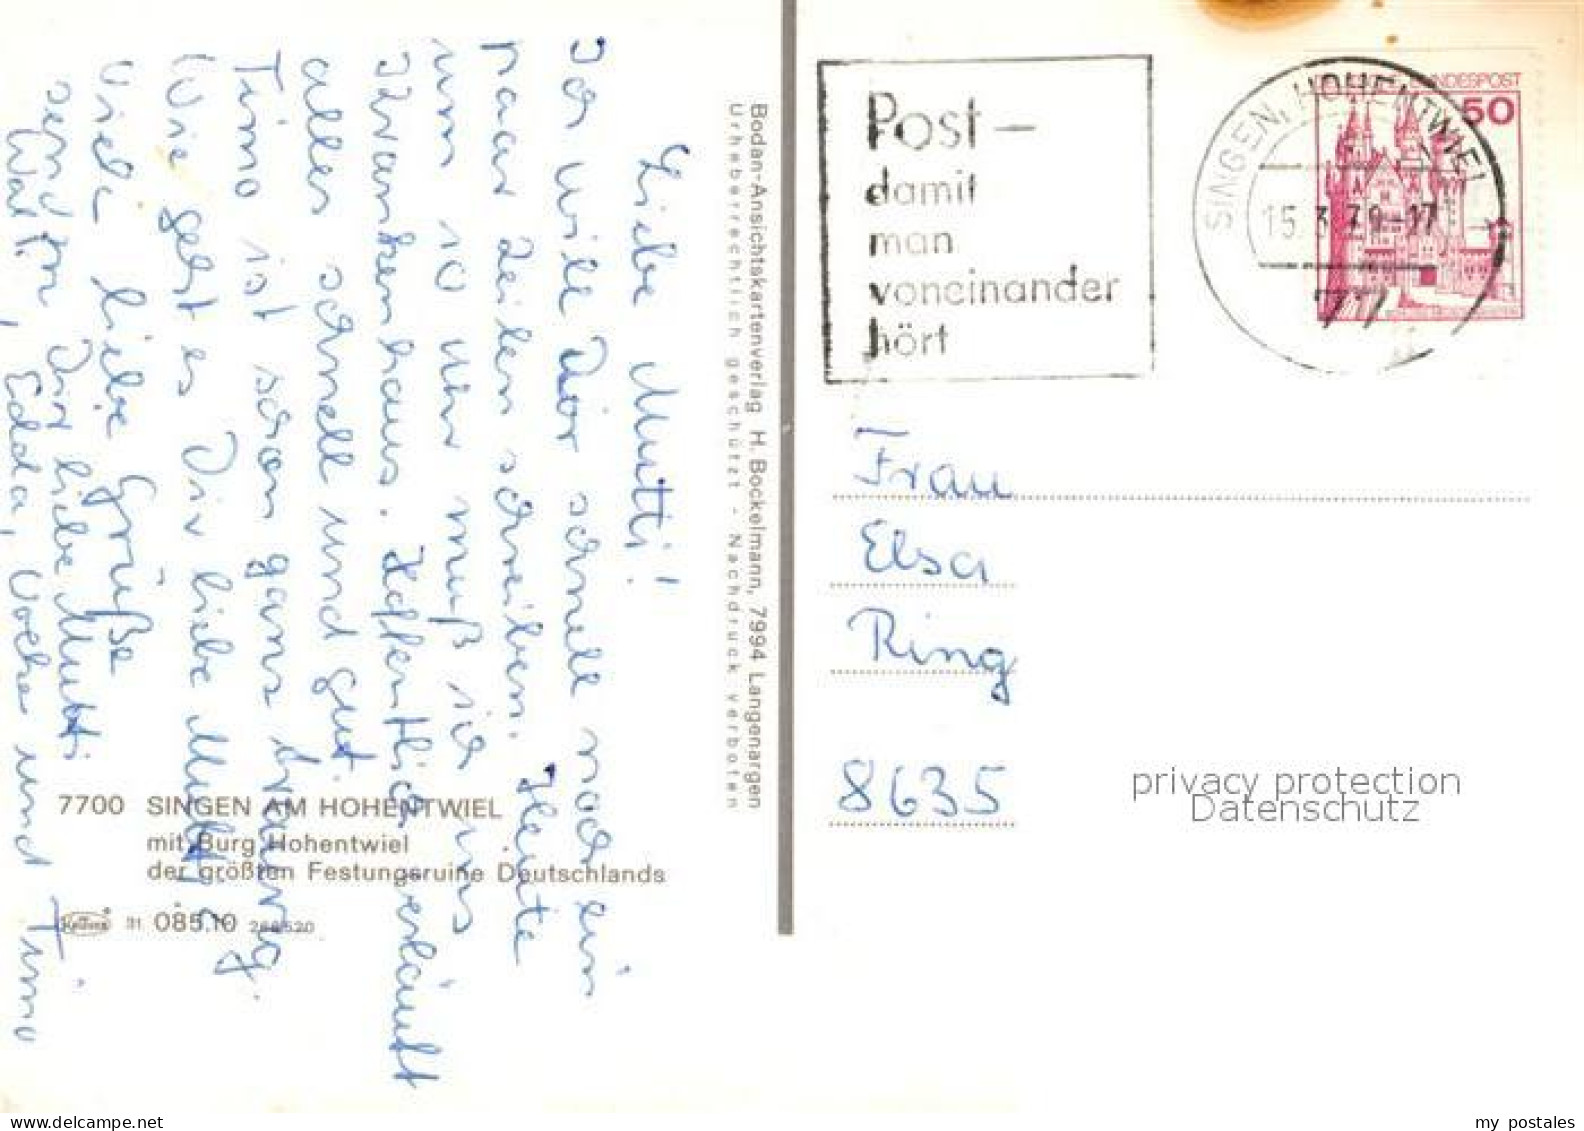 Liebe Mutti!
Ich will Dir schnell noch ein
paar Zeilen schreiben. Heute
um 10 Uhr muß ich ins
Krankenhaus. Hoffentlich verläuft
alles schnell und gut.
Timo ist schon ganz traurig.
Wie geht es Dir liebe Mutti?
Viele liebe Grüße
senden Dir liebe Mutti
Walt., Edda, und Timo
Bodan-Ansichtskartenverlag H. Bockelmann, 7994 Langenargen
Urheberrechtlich geschützt - Nachdruck verboten
7700 SINGEN AM HOHENTWIEL
mit Burg Hohentwiel
der größten Festungsruine Deutschlands
31 085.10
Post –
damit
man
voneinander
hört
SINGEN, HOHENTWIEL
15.3.79-17
BUNDESPOST
50
Frau
Elsa
Ring
8635
privacy protection
Datenschutz
www.delcampe.net
my_postales